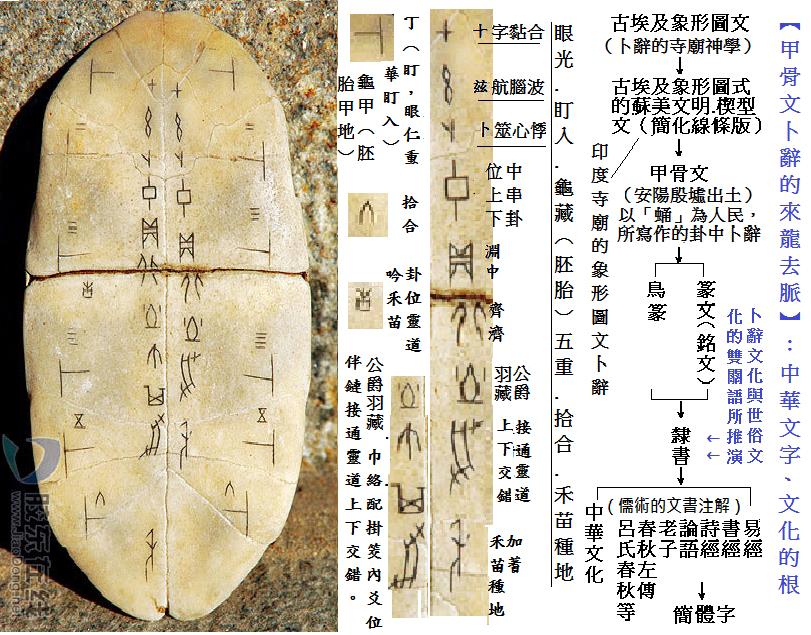 【甲骨文卜辭的來龍去脈】：中華文字、文化的根
古埃及象形圖文
（卜辭的寺廟神學）
古埃及象形圖式
的蘇美文明.楔型
文（簡化線條版）
印度寺廟的象形圖文卜辭
甲骨文
（安陽殷墟出土）
以「蛹」為人民，
所寫作的卦中卜辭
篆文(銘文)
鳥篆
卜辭文化與世俗文
化的雙關語所推演
隸書
（儒術的文書注解）
易經
書經
詩經
論語
老子
春秋左傳
呂氏春秋等
中華文化
簡體字
眼光．盯入．龜藏（胚胎）五重．拾合．禾苗種地
十字黏合
玆航腦波
卜筮心悸
中串卦
位上下
淵中
齊濟
公爵
羽藏
接通靈道
上下交錯
加著
禾苗種地
丁（盯，眼仁重
華盯入）
龜甲（胚
胎甲地）
拾合
卦位靈道
吟禾苗
公爵羽藏．巾絡配掛筊內爻位
伴鏈接通靈道上下交錯。
胶东在线
www.jiaodong.net